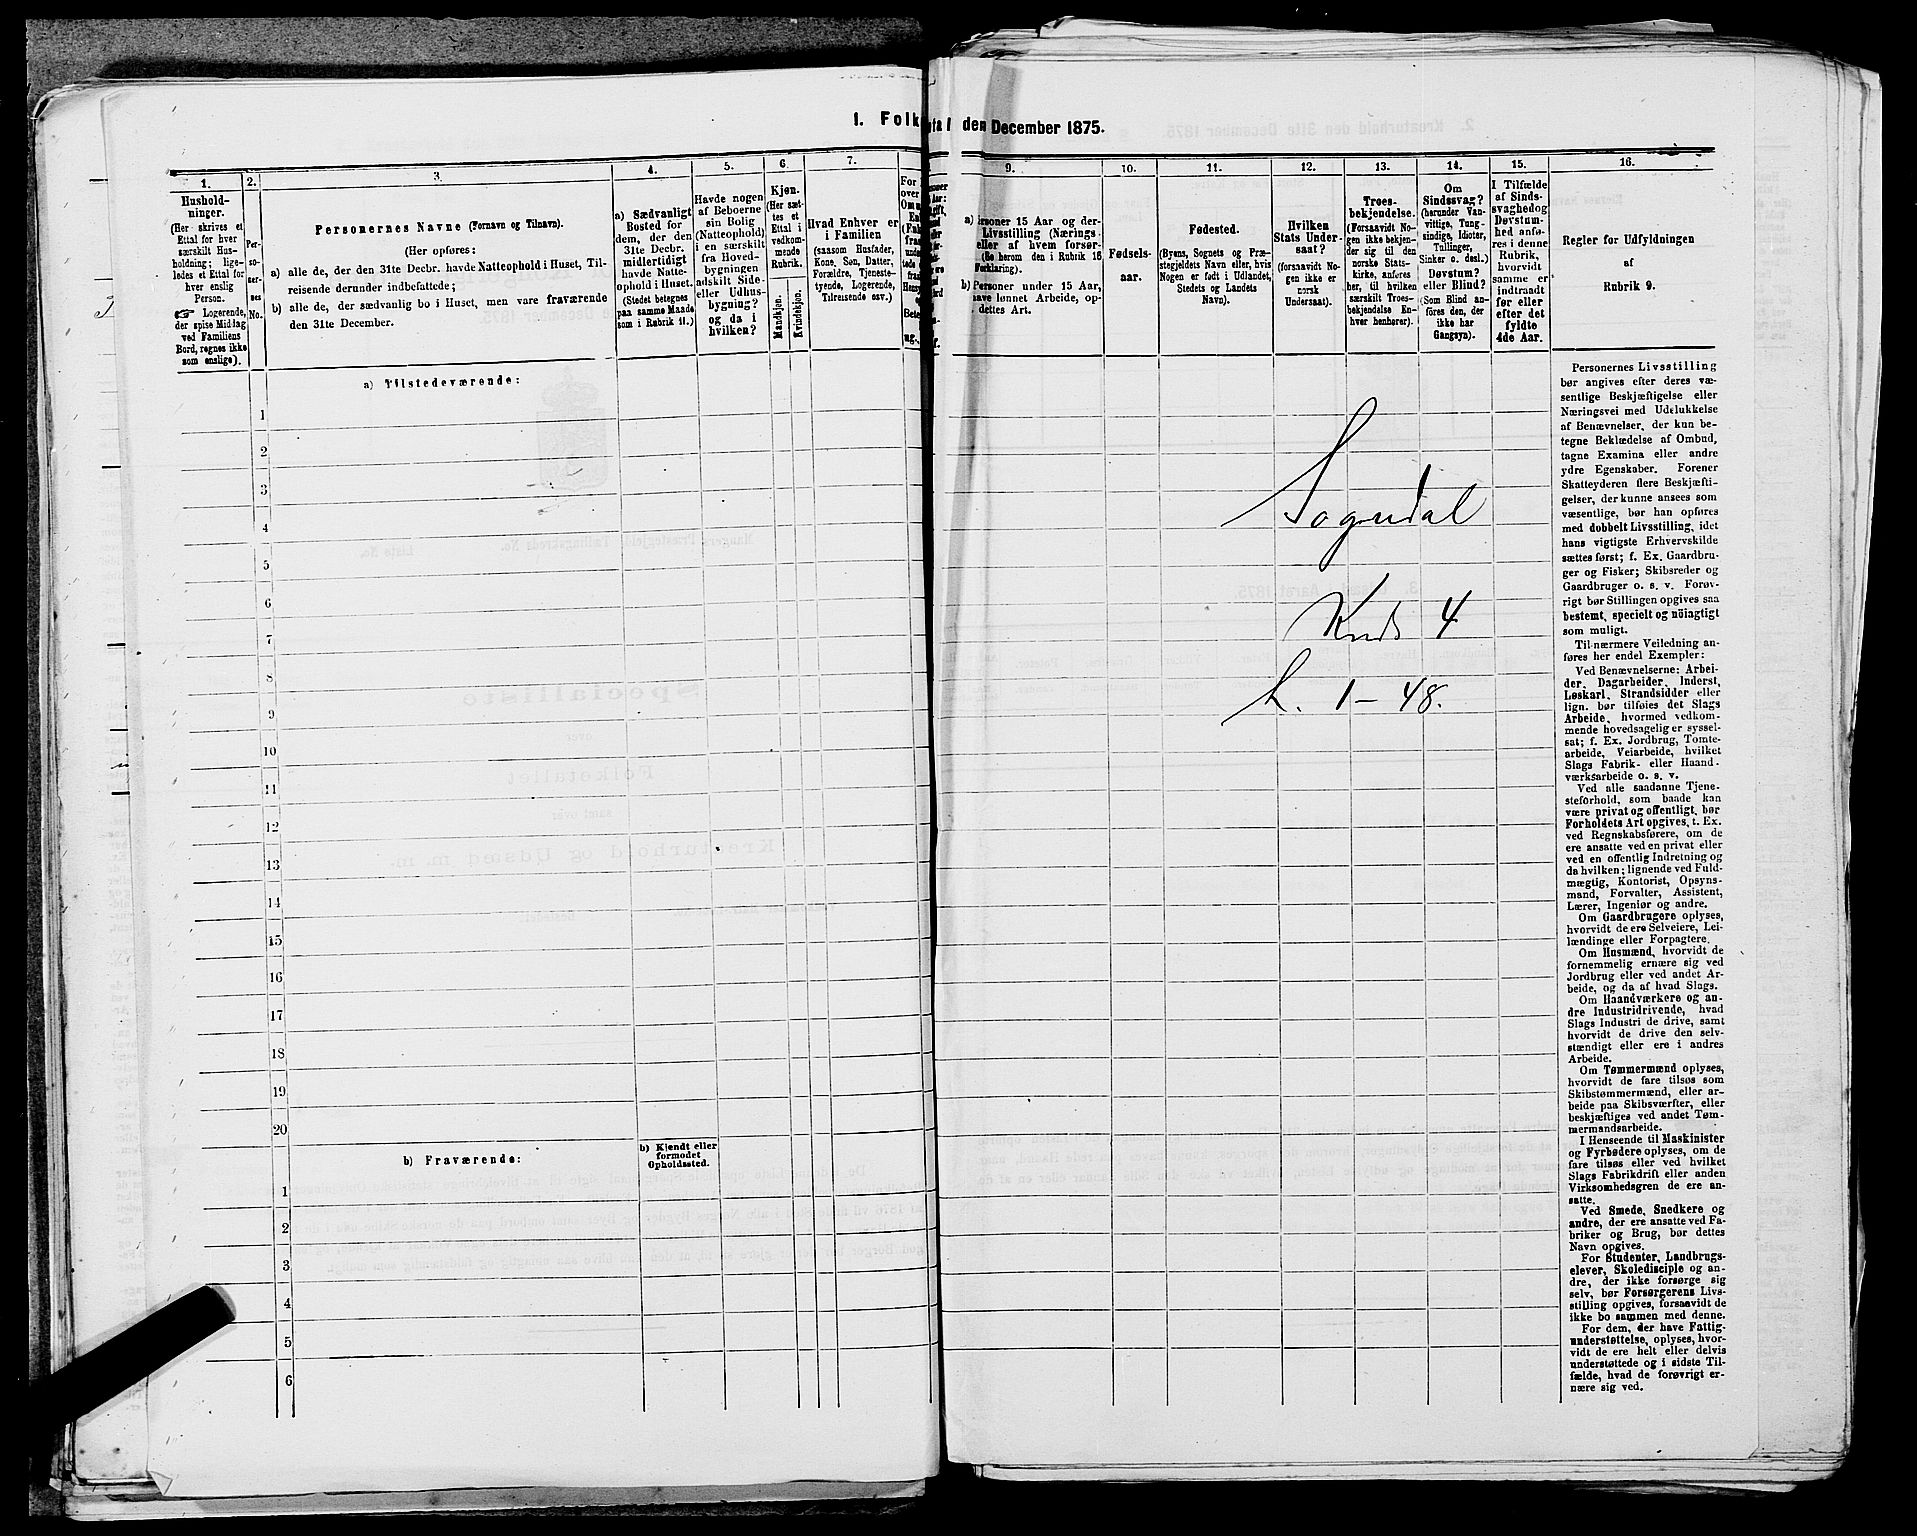 1. Folketal den December 1875.
1.
Hushold-
ninger.
(Her skrives et
Ettal for hver
særskilt Hus-
holdning; lige-
ledes et Ettal for
hver enslig
Person.
☞ Logerende,
der spise Middag
ved Familiens
Bord, regnes ikke
som enslige).
2.
Per-
so-
ner-
nes
No.
3.
Personernes Navne (Fornavn og Tilnavn).
(Her opføres:
a) alle de, der den 31te Decbr. havde Natteophold i Huset, Til-
reisende derunder indbefattede;
b) alle de, der sædvanlig bo i Huset, men vare fraværende
den 31te December.
4.
a) Sædvanligt
Bosted for
dem, der den
31te Decbr.
midlertidigt
havde Natte-
ophold i Huset.
(Stedet betegnes
paa samme Maade
som i Rubrik 11.)
5.
Havde nogen
af Beboerne
sin Bolig
(Natteophold)
i en særskilt
fra Hoved-
bygningen
adskilt Side-
eller Udhus-
bygning?
og da i
hvilken?
6.
Kjøn.
(Her sæt-
tes et
Ettal i
vedkom-
mende
Rubrik.
Mandkjøn.
Kvindekjøn.
7.
Hvad Enhver er
i Familien
(saasom Husfader,
Kone, Søn, Datter,
Forældre, Tjeneste-
tyende, Logerende,
Tilreisende osv.)
9.
a) Personer 15 Aar og der-
Livsstilling (Nærings-
eller af hvem forsør-
(Se herom den i Rubrik 16
Forklaring).
b) Personer under 15 Aar,
have lønnet Arbeide, op-
dettes Art.
10.
Fødsels-
aar.
11.
Fødested.
(Byens, Sognets og Præ-
stegjeldets Navn eller, hvis
Nogen er født i Udlandet,
Stedets og Landets
Navn).
12.
Hvilken
Stats Under-
saat?
(forsaavidt No-
gen ikke er
norsk
Undersaat).
13.
Troes-
bekjendelse.
(Forsaavidt No-
gen ikke bekjen-
der sig til den
norske Stats-
kirke, anføres
her, til hvilken
særskilt Troes-
bekjendelse En-
hver henhører).
14.
Om
Sindssvag?
(herunder Van-
vittige, Tung-
sindige, Idioter,
Tullinger,
Sinker o. desl.)
Døvstum?
eller Blind?
(Som Blind an-
føres den, der
ikke har
Gangsyn).
15.
I Tilfælde
af Sinds-
svaghed og
Døvstum-
hed anfø-
res i denne
Rubrik,
hvorvidt
samme er
indtraadt
før eller
efter det
fyldte
4de Aar.
16.
Regler for Udfyldningen
af
Rubrik 9.
a) Tilstedeværende:
1
2
3
4
5
6
7
8
9
10
11
12
13
14
15
16
17
18
19
20
b) Fraværende:
b) Kjendt eller
formodet
Opholdssted.
1
2
3
4
5
6
Sogndal
Kreds 4
L. 1-48.
Personernes Livsstilling
bør angives efter deres væ-
sentlige Beskjæftigelse eller
Næringsvei med Udelukkelse
af Benævnelser, der kun be-
tegne Beklædelse af Ombud,
tagne Examina eller andre
ydre Egenskaber. Forener
Skatteyderen flere Beskjæfti-
gelser, der kunne ansees som
væsentlige, bør han opføres
med dobbelt Livsstilling, idet
hans vigtigste Erhvervskilde
sættes først; f. Ex. Gaardbru-
ger og Fisker; Skibsreder og
Gaardbruger o. s. v. Forøv-
rigt bør Stillingen opgives saa
bestemt, specielt og nöiagtigt
som muligt.
Til nærmere Veiledning an-
føres her endel Exempler:
Ved Benævnelserne: Arbei-
der, Dagarbeider, Inderst,
Løskarl, Strandsidder eller
lign. bør tilføies det Slags
Arbeide, hvormed vedkom-
mende hovedsagelig er syssel-
sat; f. Ex. Jordbrug, Tomte-
arbeide, Veiarbeide, hvilket
Slags Fabrik- eller Haand-
værksarbeide o. s. v.
Ved alle saadanne Tjene-
steforhold, som baade kan
være privat og offentligt, bør
Forholdets Art opgives, t. Ex.
ved Regnskabsførere, om de
ere ansatte ved en privat eller
ved en offentlig Indretning og
da hvilken; lignende ved Fuld-
mægtig, Kontorist, Opsyns-
mand, Forvalter, Assistent,
Lærer, Ingeniør og andre.
Om Gaardbrugere oplyses,
hvorvidt de ere Selveiere, Lei-
lændinge eller Forpagtere.
Om Husmænd, hvorvidt de
fornemmelig ernære sig ved
Jordbrug eller ved andet Ar-
beide, og da af hvad Slags.
Om Haandværkere og an-
dre Industridrivende, hvad
Slags Industri de drive, samt
hvorvidt de drive den selv-
stændigt eller ere i andres
Arbeide.
Om Tømmermænd oplyses,
hvorvidt de fare tilsøs som
Skibstømmermænd, eller ar-
beide paa Skibsværfter, eller
beskjæftiges ved andet Tøm-
mermandsarbeide.
I Henseende til Maskinister
og Fyrbødere oplyses, om de
fare tilsøs eller ved hvilket
Slags Fabrikdrift eller anden
Virksomhedsgren de ere an-
satte.
Ved Smede, Snedkere og
andre, der ere ansatte ved Fa-
briker og Brug, bør dettes
Navn opgives.
For Studenter, Landbrugs-
elever, Skoledisciple og an-
dre, der ikke forsørge sig
selv, bør Forsørgerens Livs-
stilling opgives, forsaavidt de
ikke bo sammen med denne.
For dem, der have Fattig-
understøttelse, oplyses, hvor-
vidt de ere helt eller delvis
understøttede og i sidste Til-
fælde, hvad de forøvrigt er-
nære sig ved.